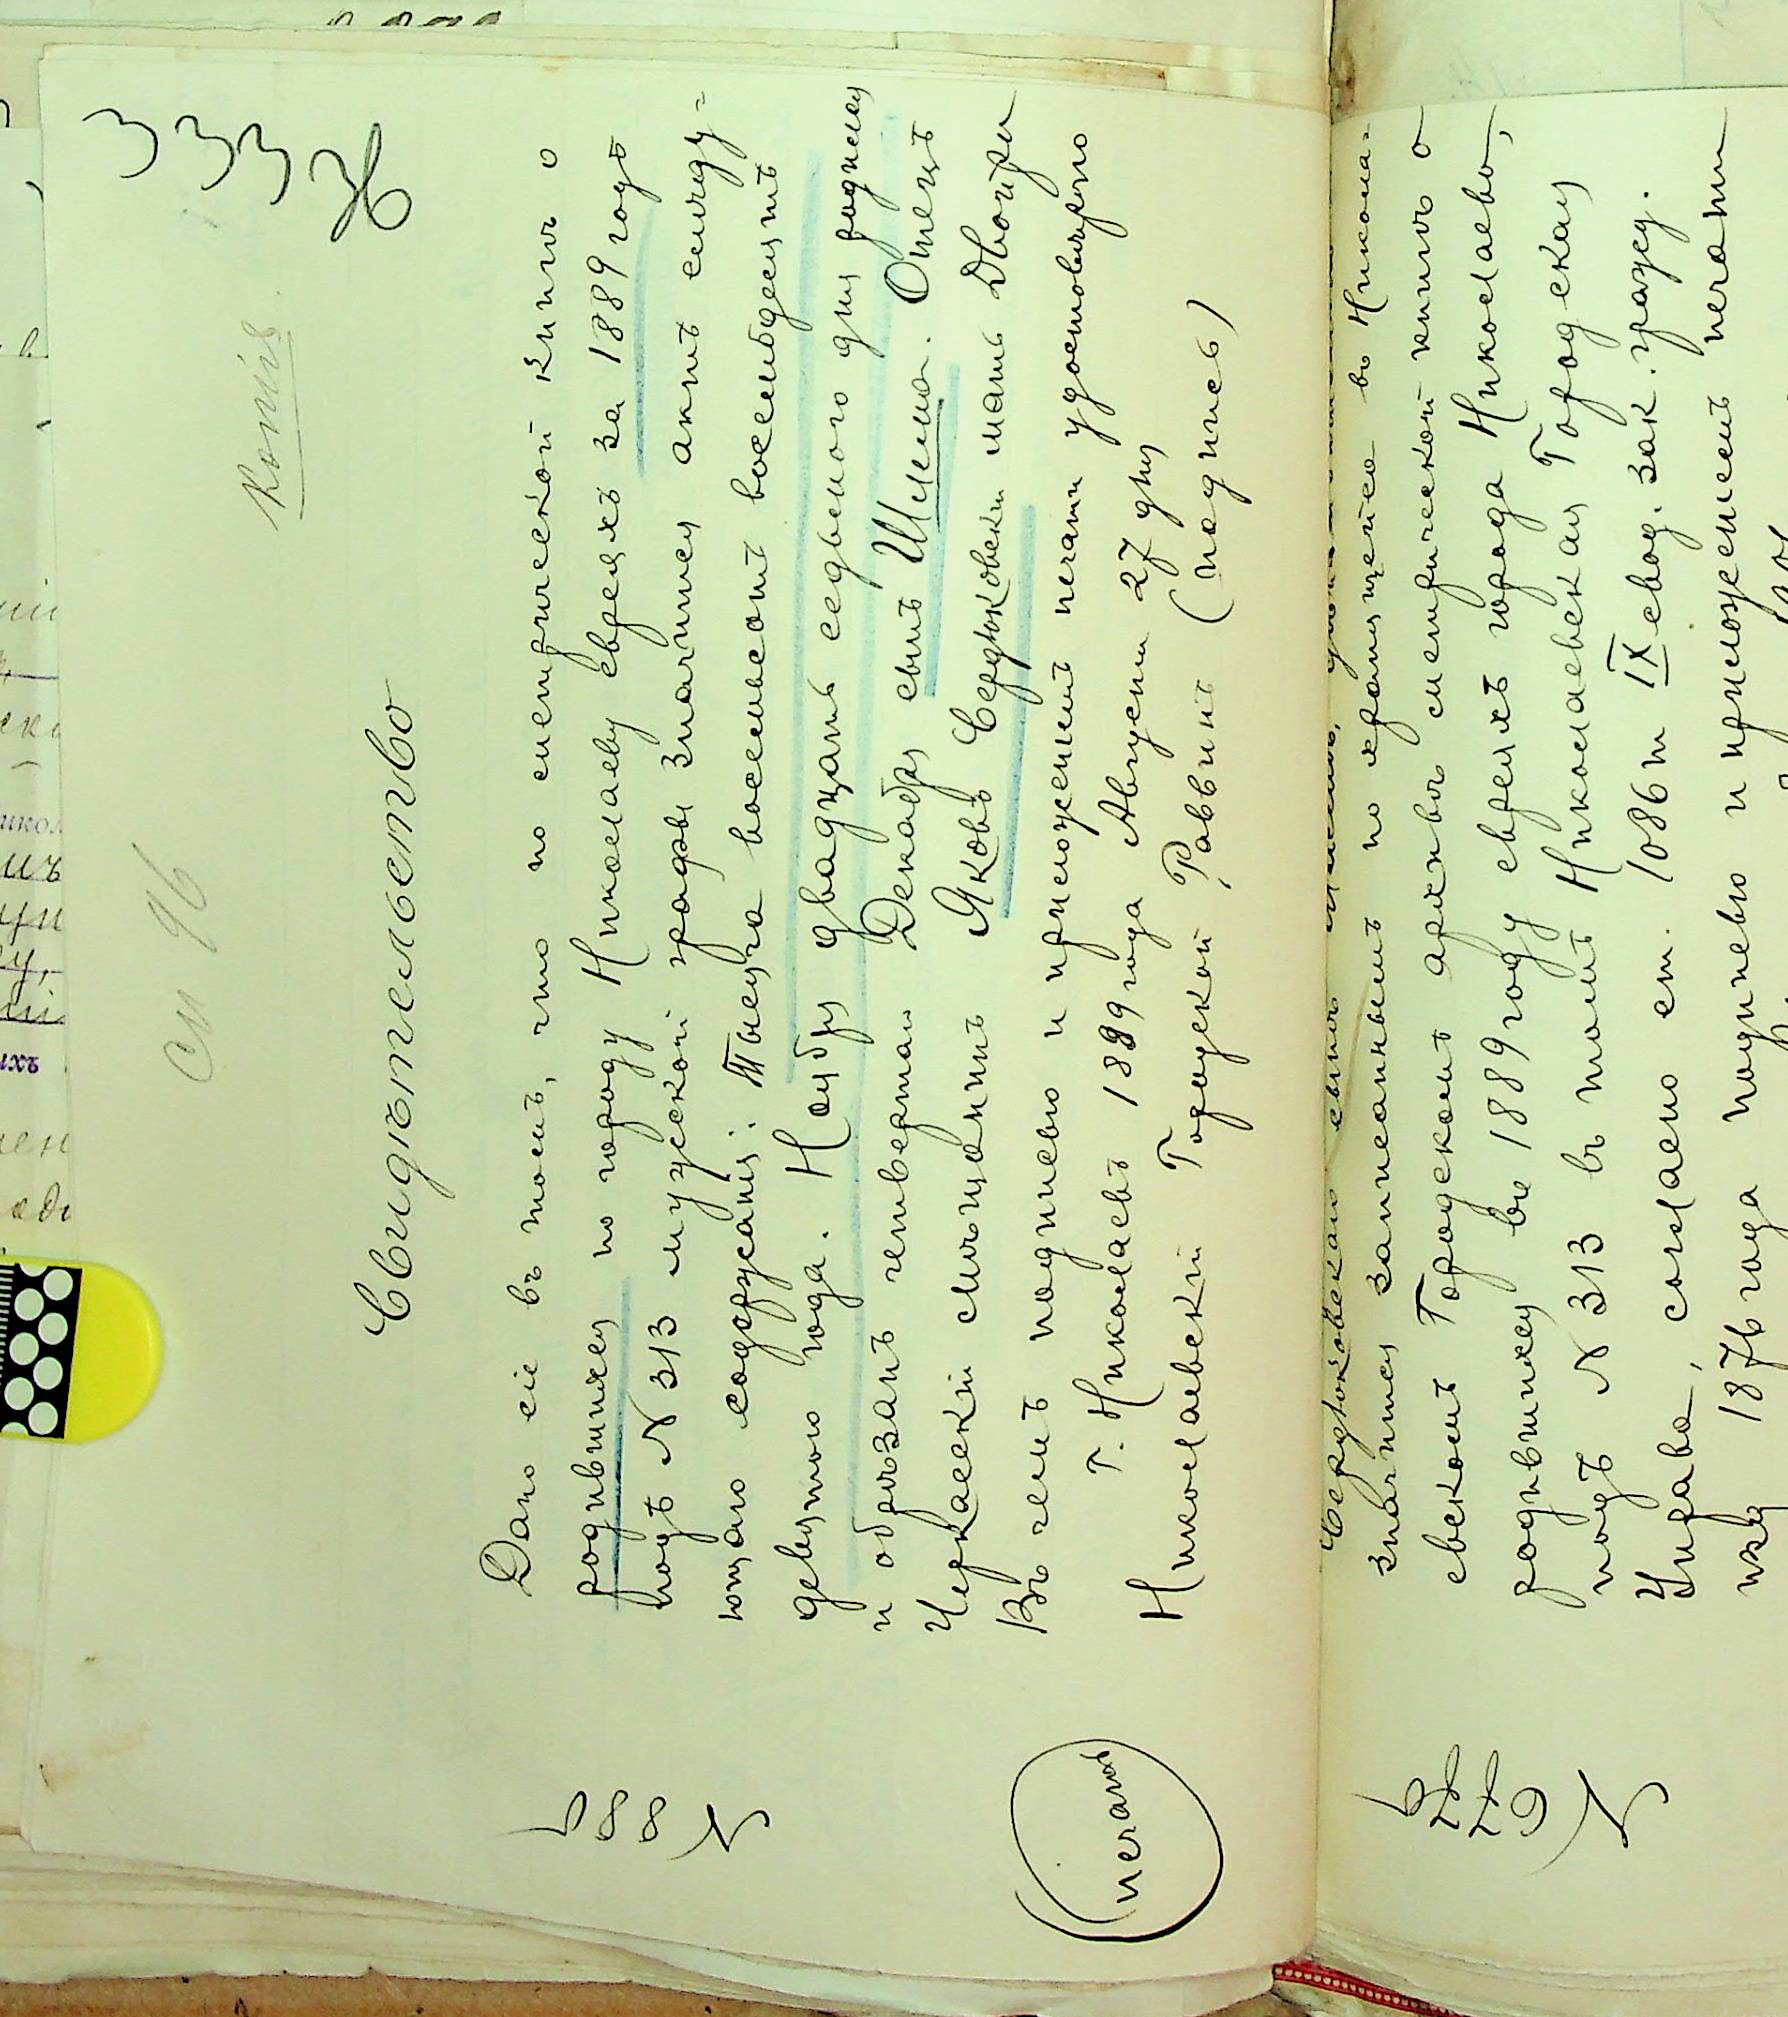 333
Копія
см 96
Свидѣтельство
Дано сіе въ томъ, что по метрической книгѣ о
родившихся по городу Николаеву евреяхъ за 1889 годъ
подъ N 313 мужеской графы значится актъ слѣду=
ющаго содержанія: Тысяча восемьсотъ восемьдесятъ
девятого года. Ноября двадцать седьмого дня родился
и обрѣзанъ четвертаго Декабря сынъ Шлема. Отецъ
Черкасскій мѣщанинъ Яковъ Сердюковски мать Двойра
Въ чемъ подписью и приложеніемъ печати удостовѣряю
Г. Николаевъ 1899 года Августа 27 дня
Николаевскій Городской Раввинъ (подпись)
N 886
печать
Сердюковскаго сынъ
значится записаннымъ по хранящейся въ Никола=
евскомъ Городскомъ архивѣ метрической книгѣ о
родившихся въ 1889 году евреяхъ города Николаева,
подъ N 313 въ томъ Николаевская Городская
Управа, согласно ст. 1086 т IX свод. зак. гражд.
изд 1876 года подписью и приложеніемъ печати
N